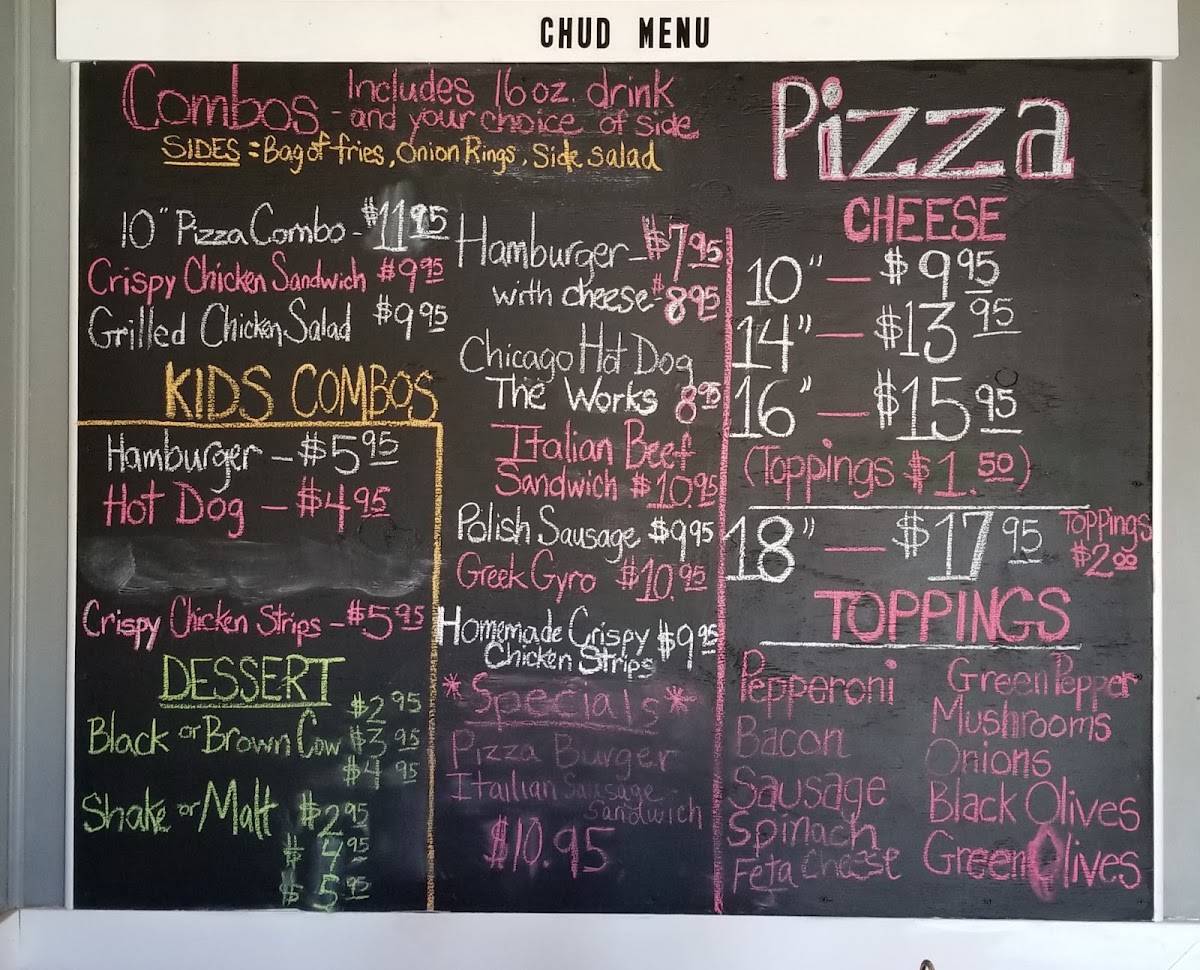 CHUD MENU
Combos - Includes 16 oz. drink
and your choice of side
SIDES = Bag of fries, Onion Rings, Side Salad
10" Pizza Combo - $11.95
Crispy Chicken Sandwich $9.95
Grilled Chicken Salad $9.95
KIDS COMBOS
Hamburger - $5.95
Hot Dog - $4.95
Crispy Chicken Strips - $5.95
DESSERT
$2.95
Black or Brown Cow $3.95
$4.95
Shake or Malt $2.95
$4.95
$5.95
Hamburger - $7.95
with cheese - $8.95
Chicago Hot Dog
The Works 8.95
Italian Beef
Sandwich $10.95
Polish Sausage $9.95
Greek Gyro $10.95
Homemade Crispy
Chicken Strips $9.95
*Specials*
Pizza Burger
Itailian Sausage
Sandwich
$10.95
Pizza
CHEESE
10" - $9.95
14" - $13.95
16" - $15.95
(Toppings $1.50)
18" - $17.95 Toppings
$2.00
TOPPINGS
Pepperoni
Bacon
Sausage
Spinach
Feta Cheese
Green Pepper
Mushrooms
Onions
Black Olives
Green Olives